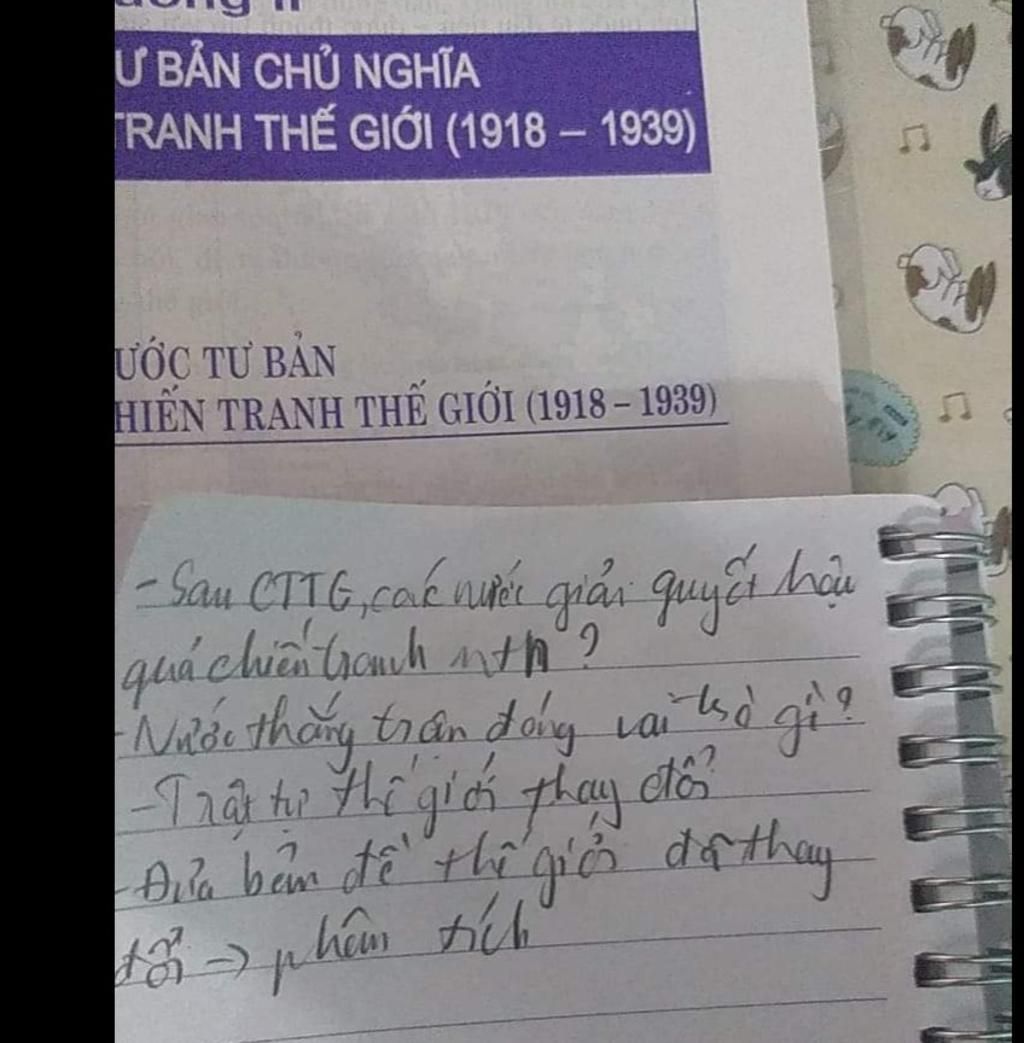 Ư BẢN CHỦ NGHĨA
TRANH THẾ GIỚI (1918 – 1939)
ƯỚC TƯ BẢN
HIẾN TRANH THẾ GIỚI (1918 – 1939)
- Sau CTTG, các nước giải quyết hậu
quả chiến tranh ntn?
- Nước thắng trận đóng vai trò gì?
- Trật tự thế giới thay đổi?
- Đưa bản đề thế giới đã thay
đổi -> phân tích